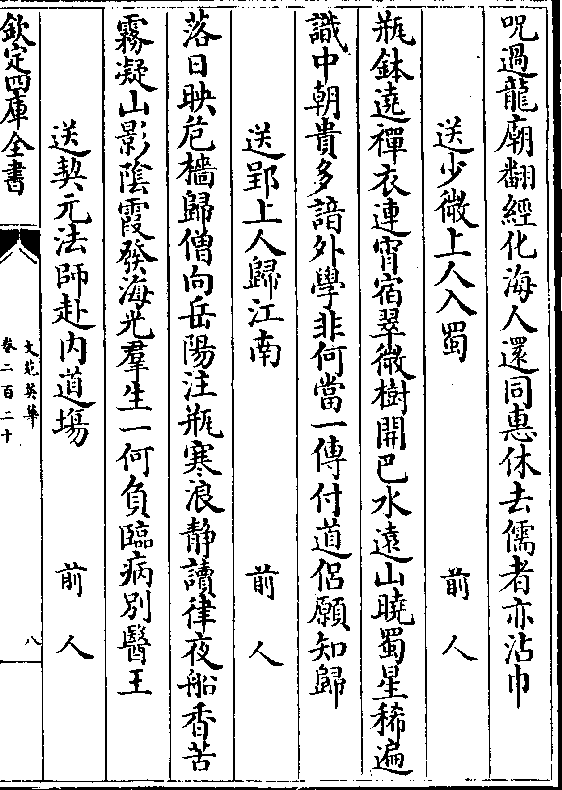 呪過龍廟翻經化海人還同惠休去儒者亦沾巾
送少微上人入蜀 前人
瓶鉢遶禪衣連宵宿翠微樹開巴水遠山曉蜀星稀遍
識中朝貴多諳外學非何當一傳付道侶願知歸
送郢上人歸江南 前人
落日映危檣歸僧向岳陽注瓶寒浪静讀律夜船香苦
霧凝山影陰霞發海光羣生一何負臨病別醫王
送契元法師赴内道場 前人
欽定四庫全書
文苑英華
卷二百二十
八